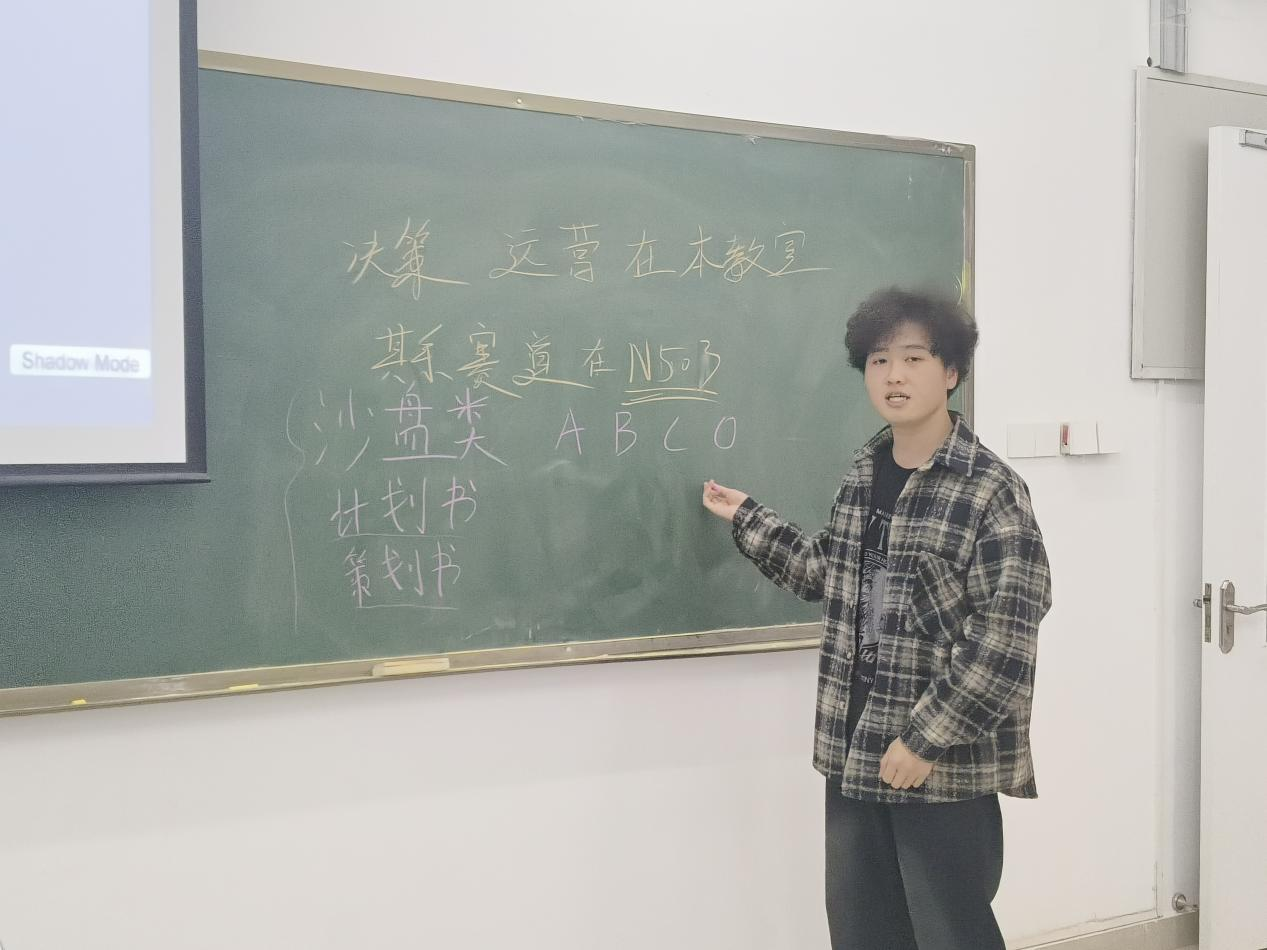 Shadow Mode
决策 运营 在本教室
其余赛道在 N503
沙盘类 A B C D
计划书
策划书